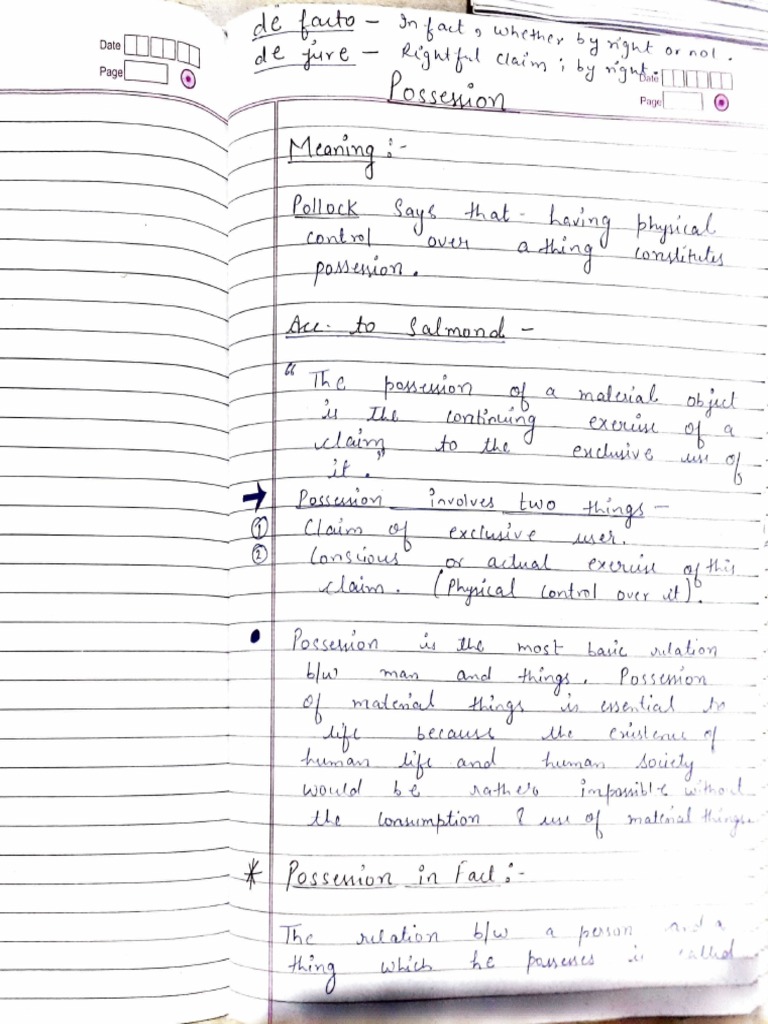 Date
Page
de facto - In fact, whether by right or not.
de jure - Rightful claim; by right.
Date
Page
Possession
Meaning :-
Pollock says that - having physical
control over a thing constitutes
possession.
Acc. to Salmond -
"The possession of a material object
is the continuing exercise of a
claim, to the exclusive use of
it."
→ Possession involves two things -
① Claim of exclusive user.
② Conscious or actual exercise of this
claim. (Physical control over it).
• Possession is the most basic relation
b/w man and things. Possession
of material things is essential to
life because the existence of
human life and human society
would be rather impossible without
the consumption & use of material things.
* Possession in Fact :-
The relation b/w a person and a
thing which he possesses is called